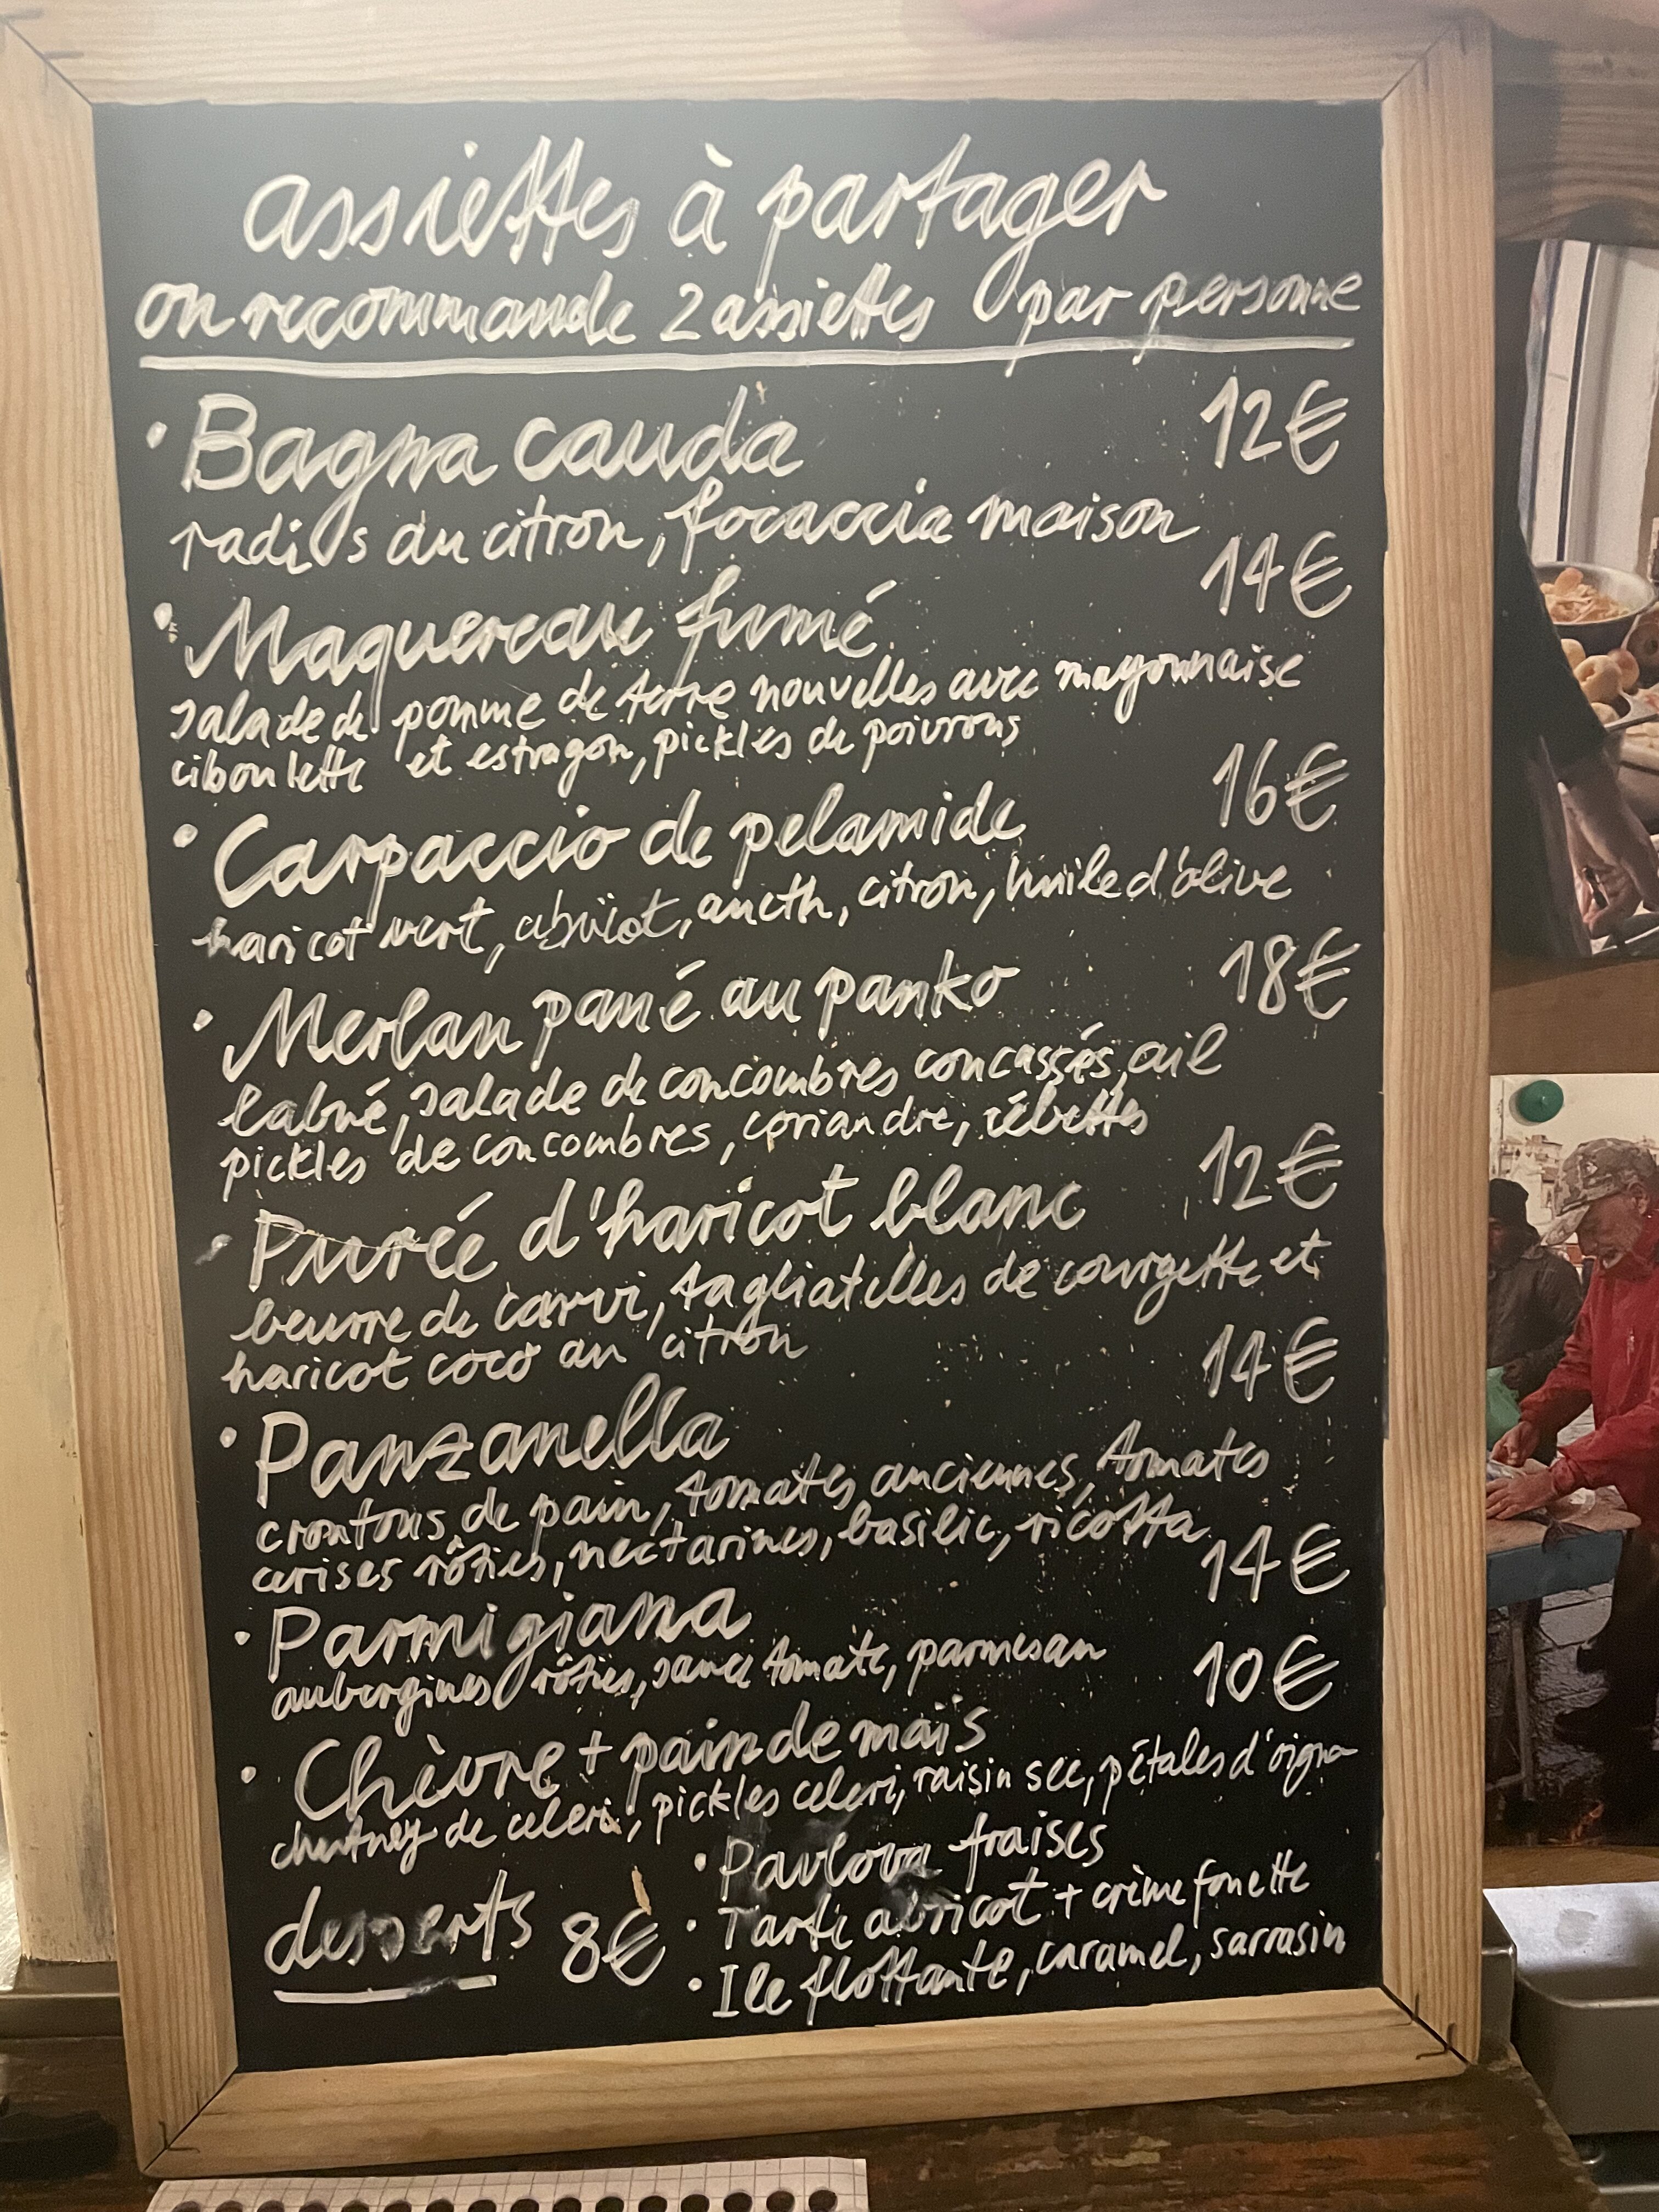 assiettes à partager
on recommande 2 assiettes par personne
• Bagna cauda 12€
radis du citron, focaccia maison
• Maquereau fumé 14€
salade de pomme de terre nouvelles avec mayonnaise
ciboulette et estragon, pickles de poivrons
• Carpaccio de pelamide 16€
haricot vert, abricot, aneth, citron, huile d'olive
• Merlan pané au panko 18€
labné, salade de concombres concassés, ail
pickles de concombres, coriandre, cébettes
• Purée d'haricot blanc 12€
beurre de carvi, tagliatelles de courgette et
haricot coco au citron
• Panzanella 14€
croutons de pain, tomates anciennes, tomates
cerises rôties, nectarines, basilic, ricotta
• Parmigiana 14€
aubergines rôties, sauce tomate, parmesan
• Chèvre + pain de maïs 10€
chutney de celeri, pickles celeri, raisin sec, pétales d'oignon
desserts 8€
• Pavlova fraises
• Tarte abricot + crème fouette
• Ile flottante, caramel, sarrasin